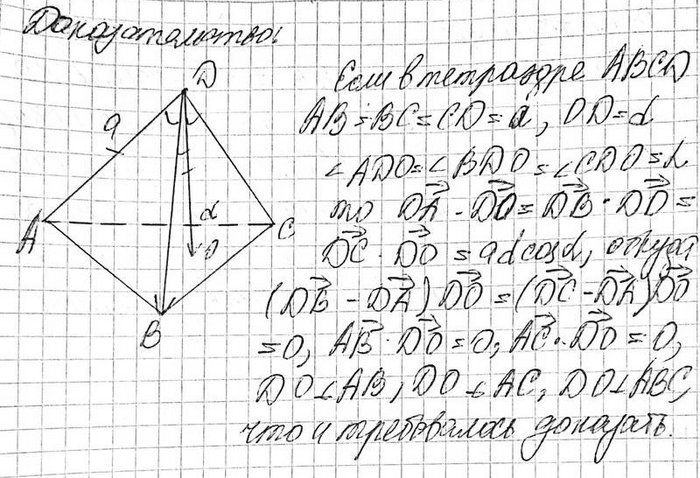 Доказательство:
D
Если в тетраэдре ABCD
a
AB = BC = CD = a, DO = d
∠ADO = ∠BDO = ∠CDO = α
то DA · DO = DB · DO =
A
d
O
C
DC · DO = ad cos α, откуда
(DB - DA) DO = (DC - DA) DO
= 0, AB · DO = 0, AC · DO = 0,
B
DO ⊥ AB, DO ⊥ AC, DO ⊥ ABC,
что и требовалось доказать.